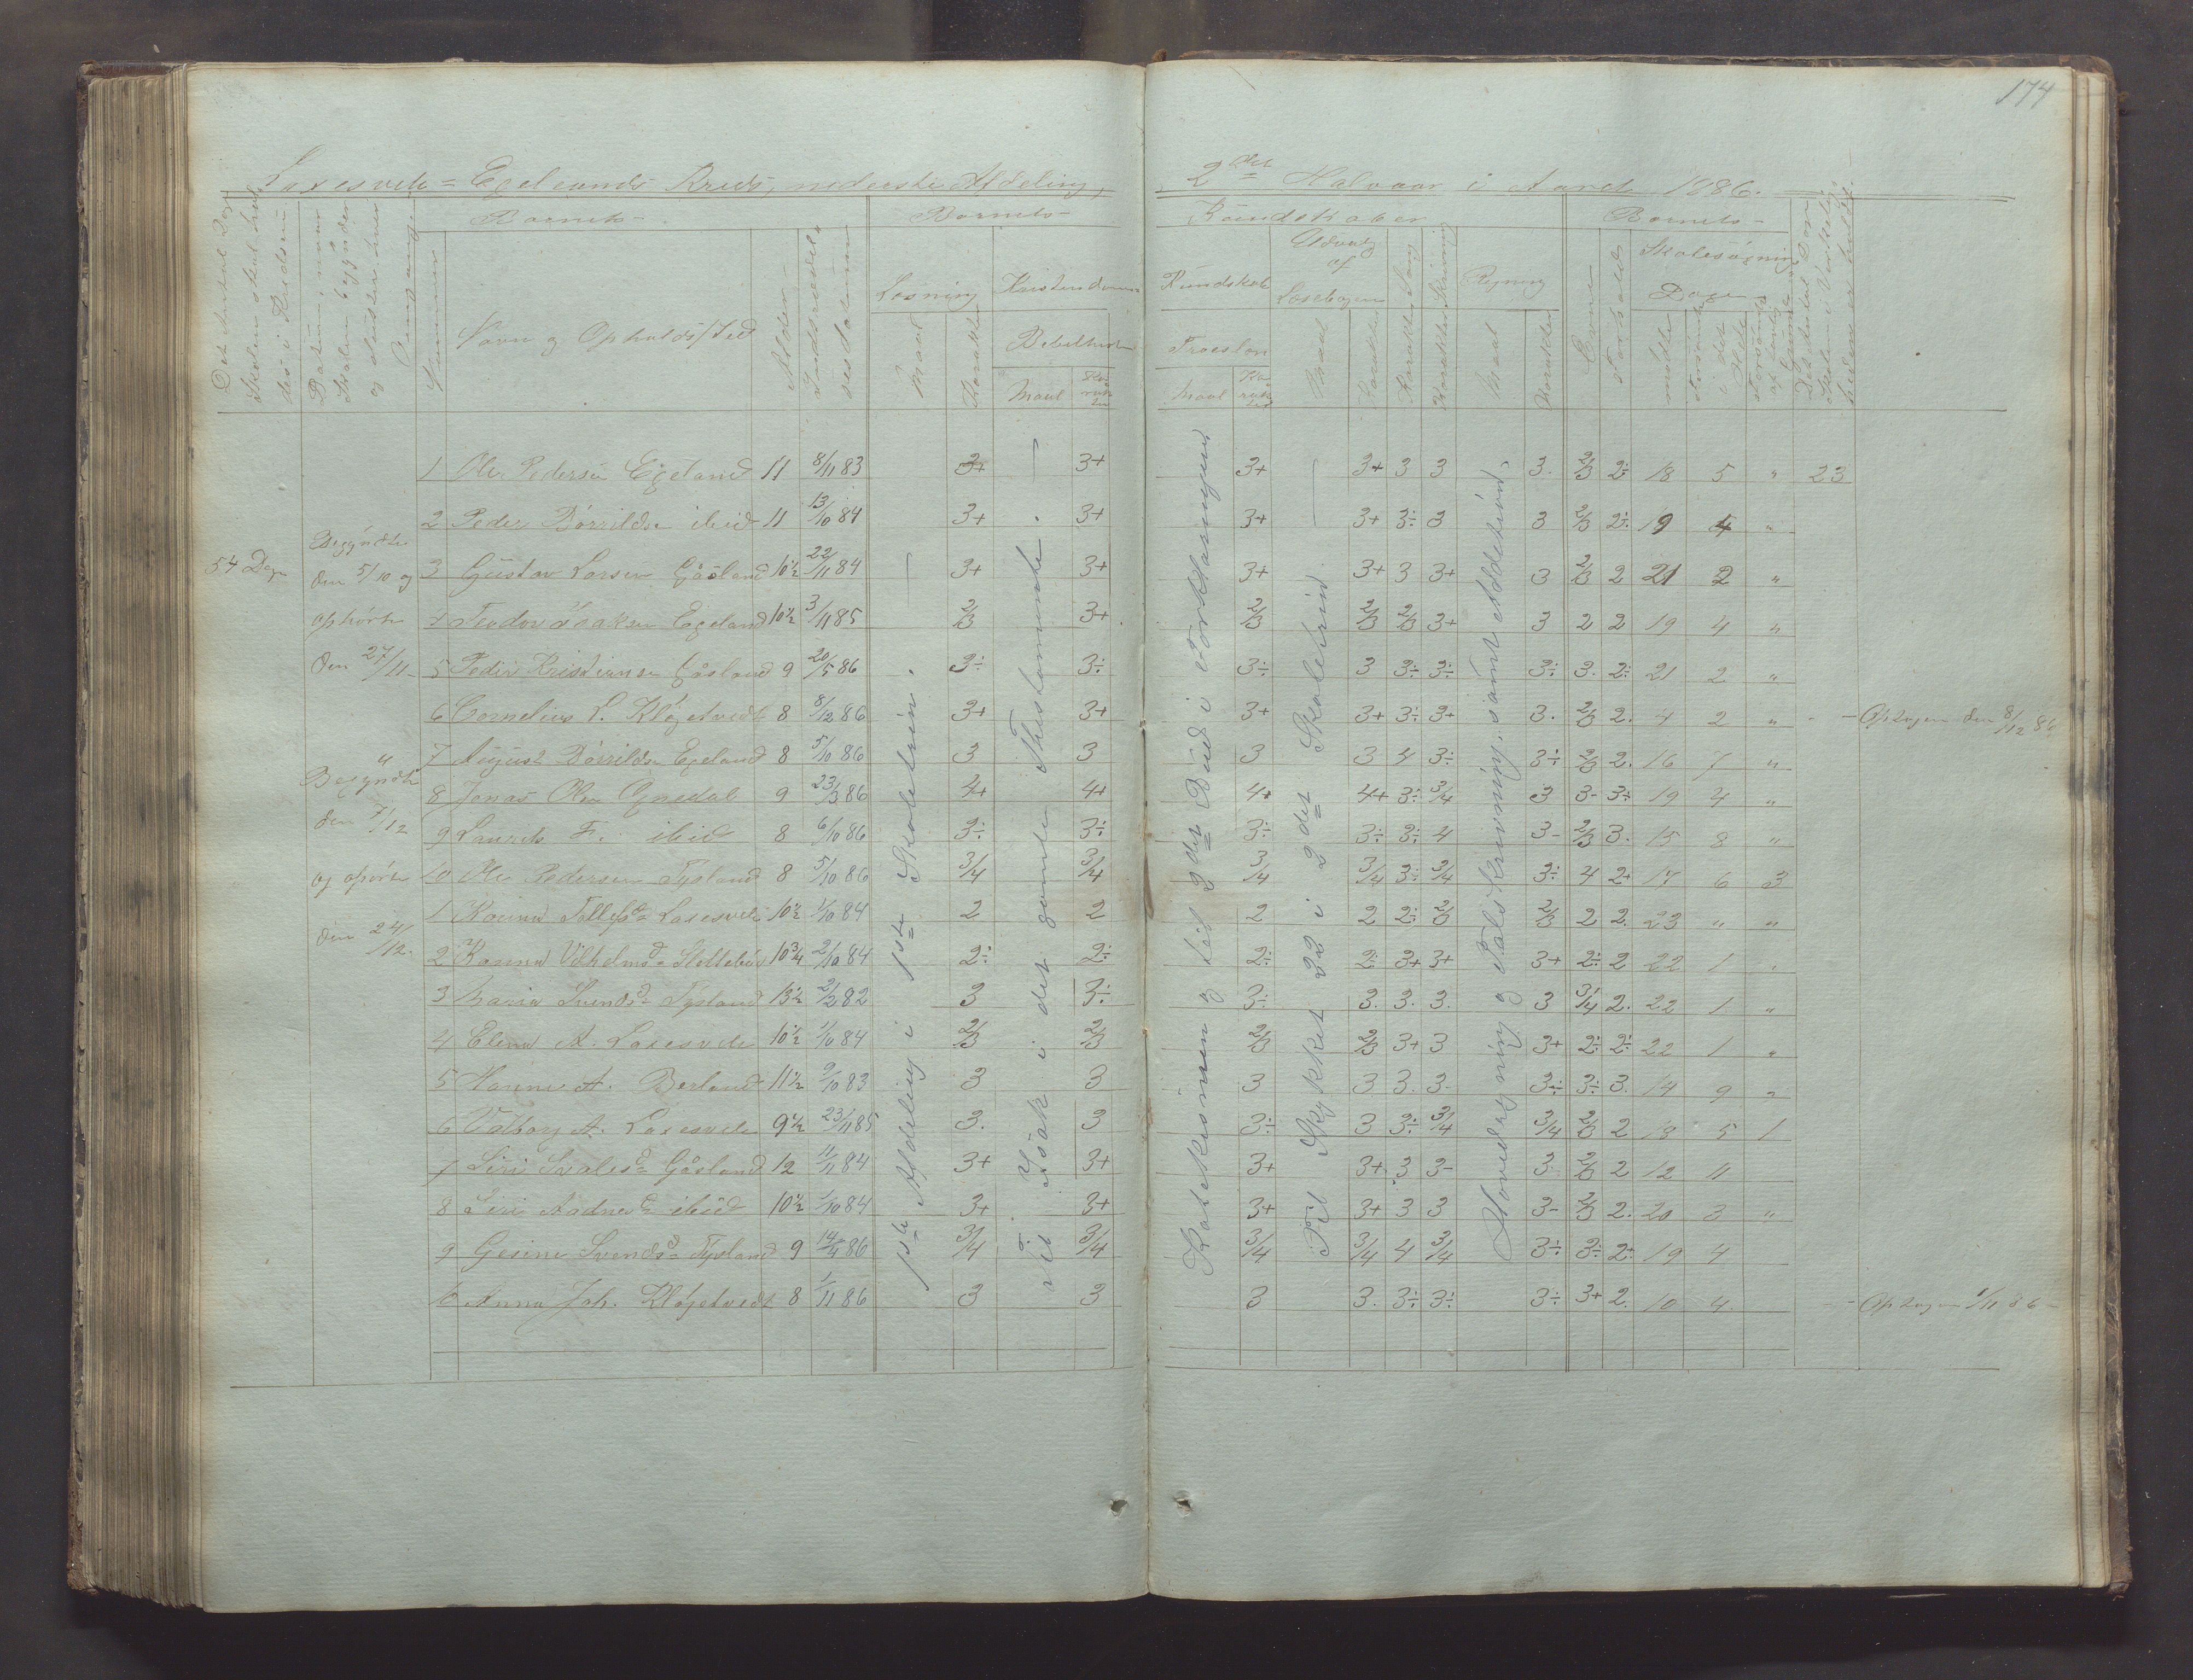 174
Laxesvele = Egelands Kreds, nederste Afdeling, 2det Halvaar i Aaret 1886.
Det Antal Dage Skolen skal holdes i Kredsen
Datum, naar Skolen begynder og slutter hver Omgang
Barnets -
Nummer
Navn og Opholdssted
Alder
Indtrædelsesdatum
Barnets -
Læsning
Maal
Karakter
Kristendoms-
Bibelhistorie
Maal
Karakter
Kundskaber
Kundskab
Troeslære
Maal
Karakter
Udvalg af Læsebogen
Maal
Karakter
Karakter Sang
Karakter Skrivning
Regning
Maal
Karakter
Barnets -
Evne
Forhold
Skolesøgning
Dage
mødte
forsømte i det Hele
forsømte af lovlig Grund
Det Antal Dage Skolen i Virkeligheden er holdt
54 Dage
Begyndte den 5/10 og ophørte den 27/11 -
" Begyndte den 7/12 og ophørte den 24/12.
1ste Afdeling i 1ste Skoletrin.
Til Isak i det gamle Testamente.
Katekismen og til 2det Bud i Forklaringen
Til Stykket 32 i 2det Skoletrin
Hovedregning og Talskrivning, samt Addition,
1 Ole Pedersen Egeland 11 8/11 83 3+ 3+ 3+ 3+ 3 3 3. 2/3 2÷ 18 5 " 23
2 Peder Børrildsen ibid 11 13/10 84 3+ 3+ 3+ 3+ 3÷ 3 3 2/3 2÷ 19 4 "
3 Gustav Larsen Gåsland 10½ 22/11 84 3+ 3+ 3+ 3+ 3 3+ 3 2/3 2 21 2 "
4 Teodor Isaksen Egeland 10½ 3/11 85 2/3 3+ 2/3 2/3 2/3 3+ 3 2 2 19 4 "
5 Peder Kristiansen Gåsland 9 20/5 86 3÷ 3÷ 3÷ 3 3÷ 3÷ 3÷ 3. 2÷ 21 2 "
6 Cornelius L. Kløgetvedt 8 8/12 86 3+ 3+ 3+ 3+ 3÷ 3+ 3. 2/3 2. 4 2 " - - Optagen den 8/12 86
7 August Børrildsen Egeland 8 5/10 86 3 3 3 3 4 3÷ 3÷ 2/3 2. 16 7 "
8 Jonas Olsen Ognedal 9 23/3 86 4+ 4+ 4+ 4+ 3÷ 3/4 3 3- 3÷ 19 4 "
9 Laurits F. ibid 8 6/10 86 3÷ 3÷ 3÷ 3÷ 3÷ 4 3- 2/3 3. 15 8 "
10 Ole Pedersen Tysland 8 5/10 86 3/4 3/4 3/4 3/4 3÷ 3/4 3÷ 4 2+ 17 6 3
1 Karina Tollefsd= Laxesvele 10½ 1/10 84 2 2 2 2 2÷ 2/3 2/3 2 2. 23 " "
2 Hanna Vilhelmsd= Slettebø 10¾ 2/10 84 2÷ 2÷ 2÷ 2÷ 3+ 3+ 3+ 2÷ 2 22 1 "
3 Maria Svendsd= Tysland 13½ 2/2 82 3 3÷ 3÷ 3. 3. 3. 3 3/4 2. 22 1 "
4 Elena A. Laxesvele 10½ 1/10 84 2/3 2/3 2/3 2/3 3+ 3 3+ 2÷ 2÷ 22 1 "
5 Hanne A. Berland 11½ 9/10 83 3 3 3 3 3. 3- 3÷ 3÷ 3. 14 9 "
6 Valborg A. Laxesvele 9½ 23/11 85 3. 3 3÷ 3 3÷ 3/4 3/4 2/3 2 18 5 1
7 Siri Svalesd= Gåsland 12 11/11 84 3+ 3+ 3+ 3+ 3 3- 3. 2/3 2 12 11
8 Siri Aadnesd= ibid 10½ 1/10 84 3+ 3+ 3+ 3+ 3 3 3- 2/3 2. 20 3 "
9 Gesine Svendsd= Tysland 9 14/4 86 3/4 3/4 3/4 3/4 4 3/4 3÷ 3÷ 2÷ 19 4
10 Anna Joh. Kløgetvedt 8 1/11 86 3 3 3 3. 3÷ 3÷ 3÷ 3+ 2. 10 4 - - Optagen 1/11 86 -